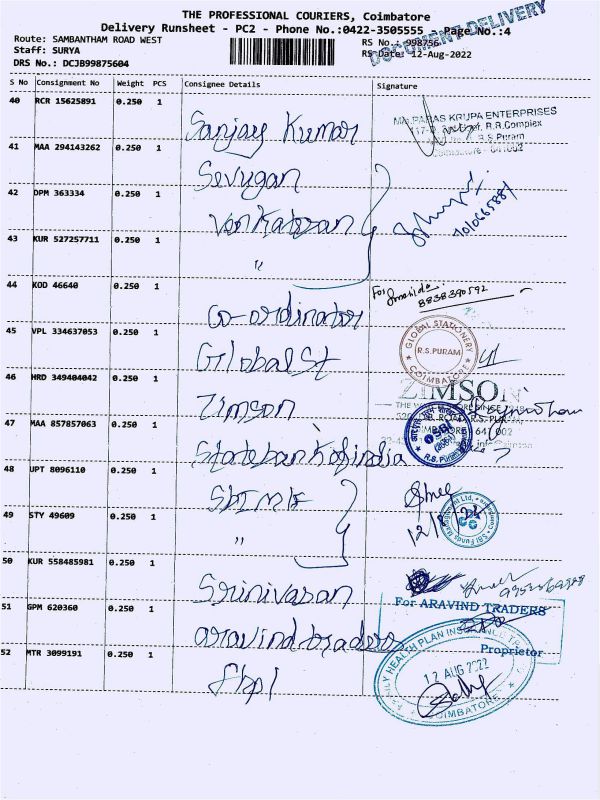 THE PROFESSIONAL COURIERS, Coimbatore
Delivery Runsheet - PC2 - Phone No.:0422-3505555 Page No.:4
DOCUMENT DELIVERY
Route: SAMBANTHAM ROAD WEST RS No.: 998756
Staff: SURYA RS Date: 12-Aug-2022
DRS No.: DCJB99875604
S No Consignment No Weight PCS Consignee Details Signature
40 RCR 15625891 0.250 1 Sanjay Kumar
PARAS KRUPA ENTERPRISES
R.R.Complex
R.S.Puram
641002
41 MAA 294143262 0.250 1 Sevugan
42 DPM 363334 0.250 1 Venkatesan
43 KUR 527257711 0.250 1 "
44 KOD 46640 0.250 1 Co-ordinator
For
8838390592
45 VPL 334637053 0.250 1 Global St
GLOBAL STATIONERY
R.S.PURAM
COIMBATORE
46 HRD 349404042 0.250 1 Zimson
ZIMSON
47 MAA 857857063 0.250 1 State bank of india
SBI
R.S. Puram
48 UPT 8096110 0.250 1 SBI MF
12/8/22
SBI Funds Management Ltd.
49 STY 49609 0.250 1 "
50 KUR 558485981 0.250 1 Srinivasan
51 GPM 620360 0.250 1 aravind traders
For ARAVIND TRADERS
Proprietor
52 MTR 3099191 0.250 1 fhpl
FAMILY HEALTH PLAN INSURANCE
12 AUG 2022
COIMBATORE